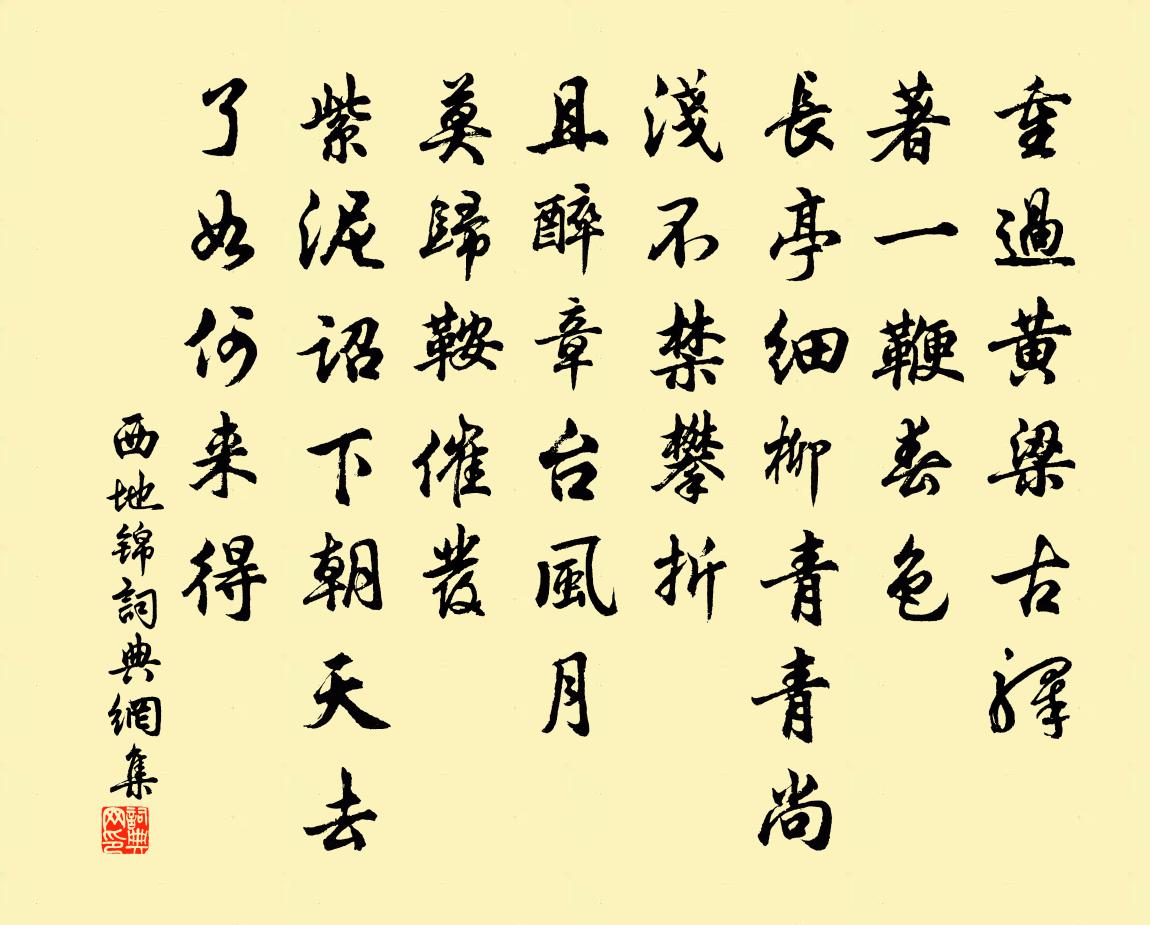 重過黄梁古驛
著一鞭春色
長亭细柳青青尚
淺不禁攀折
且醉章台風月
莫歸鞍催發
紫泥詔下朝天去
了如何来得
西地锦詞典網集
詞典网印